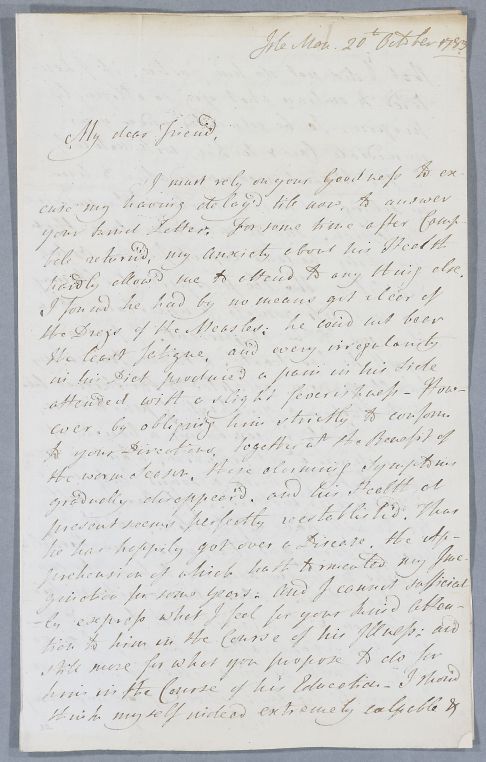 Isle Man. 20th October 1783
My dear friend,
I must rely on your Goodness to ex-
cuse my having delay'd till now, to answer
your kind Letter. For some time after Camp-
bell return'd, my anxiety about his Health
hardly allow'd me to attend to any thing else.
I found he had by no means got clear of
the Dregs of the Measles: he could not bear
the least fatigue, and every irregularity
in his Diet produced a pain in his Side
attended with a slight feverishness - How-
ever, by obliging him strictly to conform
to your Directions, together with the Benefit of
the warm Season, these alarming Symptoms
gradually disappear'd, and his Health at
present seems perfectly reestablish'd. Thus
he has happily got over a Disease, the ap-
prehension of which hath tormented my Ima-
gination for some years. And I cannot sufficient-
ly express what I feel for your kind atten-
tion to him in the Course of his Illness: and
still more for what you propose to do for
him in the Course of his Education - I should
think myself indeed extremely culpable &